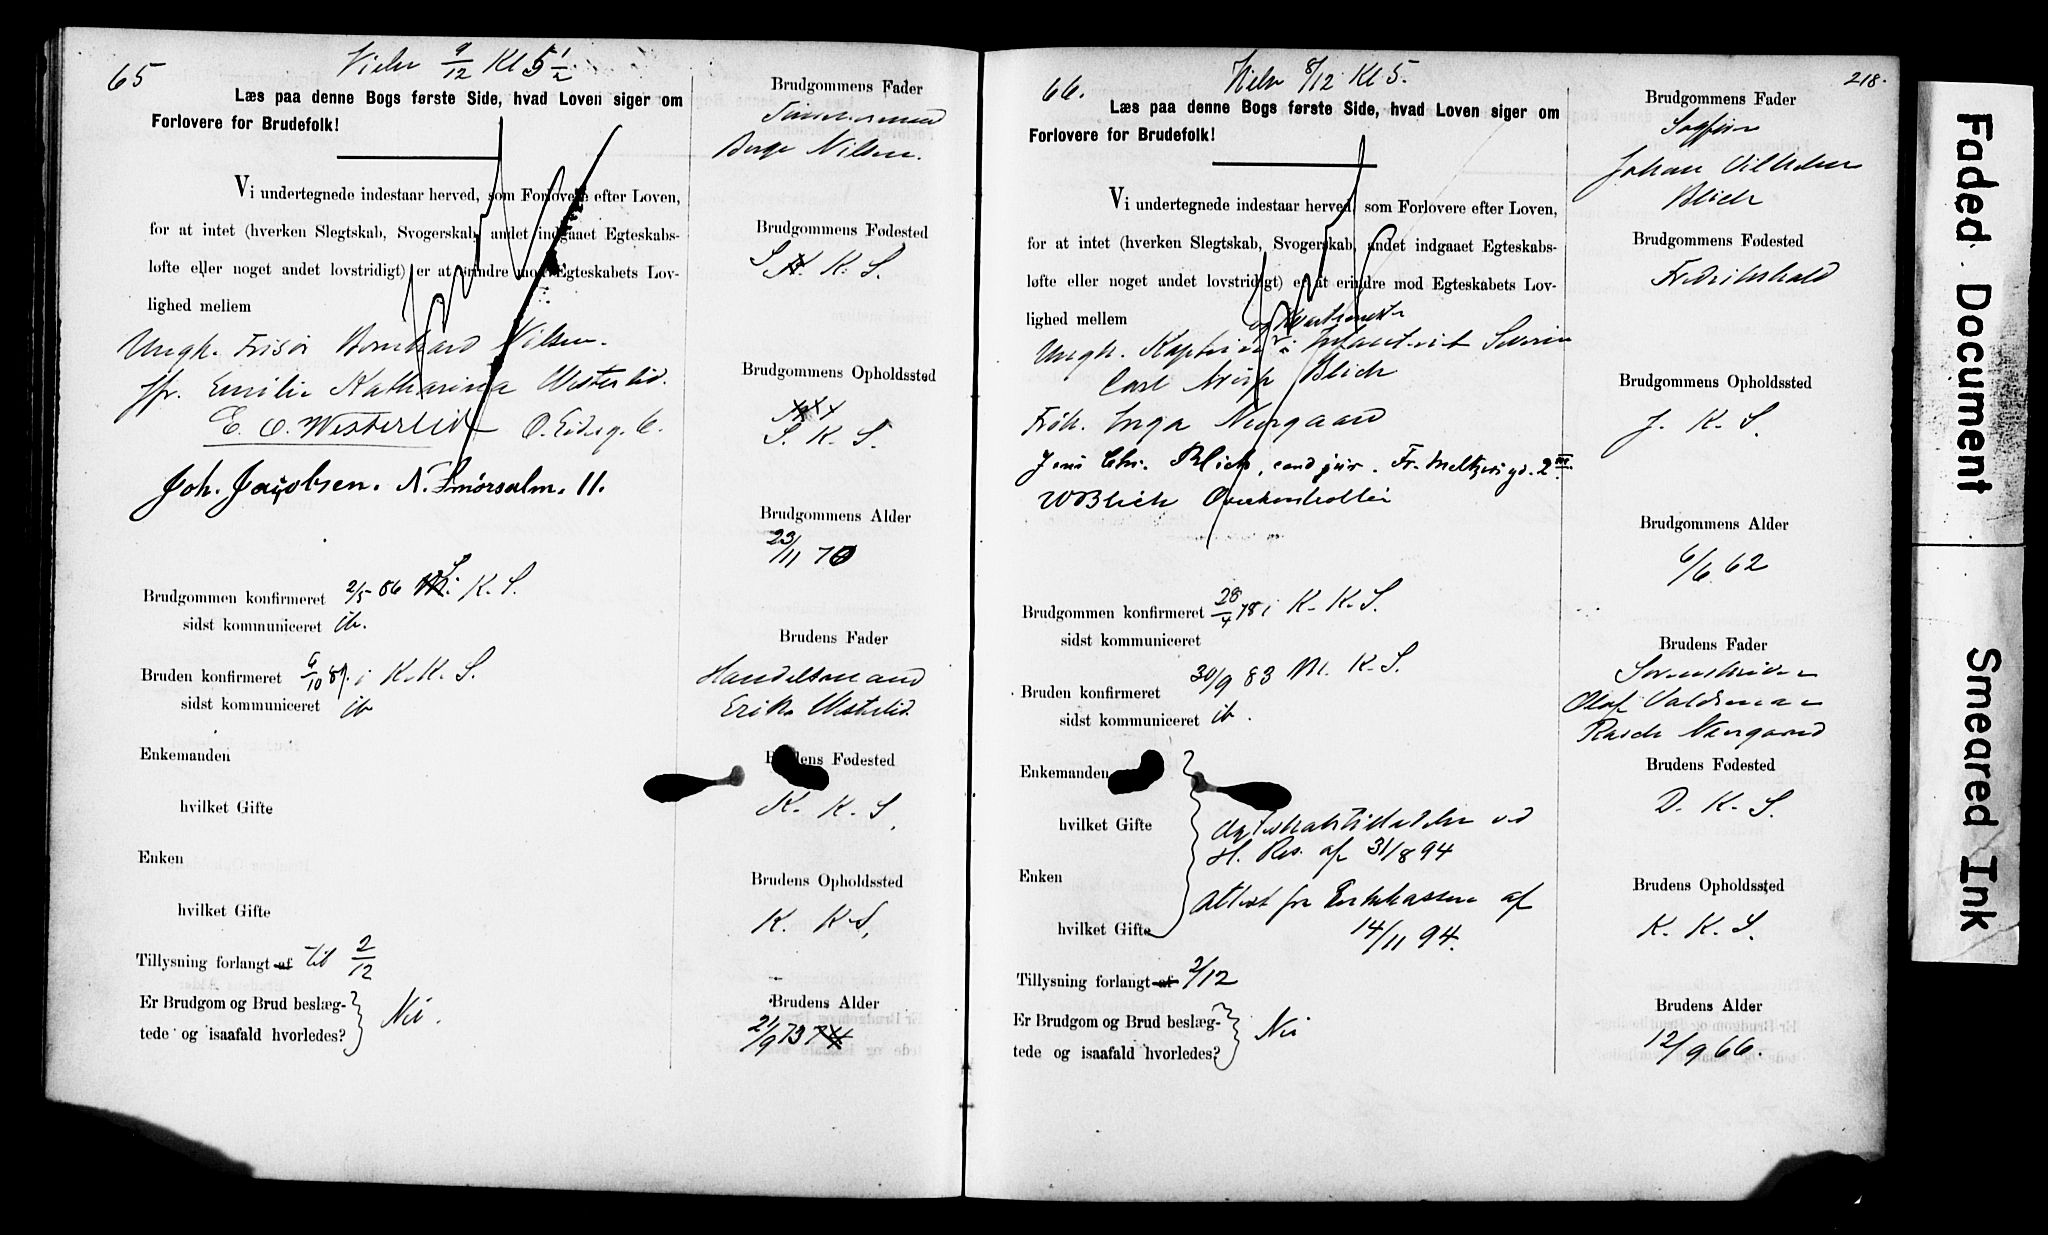 65
Vies 9/12 Kl 5 1/2
Læs paa denne Bogs første Side, hvad Loven siger om
Forlovere for Brudefolk!
Vi undertegnede indestaar herved, som Forlovere efter Loven,
for at intet (hverken Slegtskab, Svogerskab, andet indgaaet Egteskabs-
løfte eller noget andet lovstridigt) er at erindre mod Egteskabets Lov-
lighed mellem
Ungk. Frisør Bernhard Nilsen.
Jfr. Emilie Katharina Westerlid.
E. O. Westerlid
Joh. Jacobsen. N. Smörsalm. 11.
Brudgommen konfirmeret 2/5 86 K. S.
sidst kommuniceret ib.
Bruden konfirmeret 6/10 89. i K. K. S.
sidst kommuniceret ib
Enkemanden
hvilket Gifte
Enken
hvilket Gifte
Tillysning forlangt af til 2/12
Er Brudgom og Brud beslæg-
tede og isaafald hvorledes? Nei.
Brudgommens Fader
Tømmermand
Berge Nilsen.
Brudgommens Fødested
S. K. S.
Brudgommens Opholdssted
S. K. S.
Brudgommens Alder
23/11 70
Brudens Fader
Handelsmand
Erik Westerlid
Brudens Fødested
K. K. S.
Brudens Opholdssted
K. K. S.
Brudens Alder
21/9 73
66.
Vies 8/12 Kl 5.
218.
Læs paa denne Bogs første Side, hvad Loven siger om
Forlovere for Brudefolk!
Vi undertegnede indestaar herved, som Forlovere efter Loven,
for at intet (hverken Slegtskab, Svogerskab, andet indgaaet Egteskabs-
løfte eller noget andet lovstridigt) er at erindre mod Egteskabets Lov-
lighed mellem
Ungk. Kaptein i Infanteriet Severin
Carl Blich
Frøk. Inga Neergaard
Jens Chr. Blich, cand jur. Fr. Meltzersgd. 2 III
W Blich Overkontrollør
Brudgommen konfirmeret 28/4 78 i K. K. S.
sidst kommuniceret
Bruden konfirmeret 30/9 83 M. K. S.
sidst kommuniceret ib.
Enkemanden
hvilket Gifte
Enken
hvilket Gifte
Ægteskabstilladelse ved
H. Res. af 31/8 94
Attest fra Enkekassen af
14/11 94.
Tillysning forlangt af 2/12
Er Brudgom og Brud beslæg-
tede og isaafald hvorledes? Nei
Brudgommens Fader
Sagfører
Johan Vilhelm
Blich
Brudgommens Fødested
Fredrikshald
Brudgommens Opholdssted
J. K. S.
Brudgommens Alder
6/6 62
Brudens Fader
Sorenskriver
Olaf Valdemar
Rasch Neergaard
Brudens Fødested
D. K. S.
Brudens Opholdssted
K. K. S.
Brudens Alder
12/9 66.
Faded Document
Smeared Ink